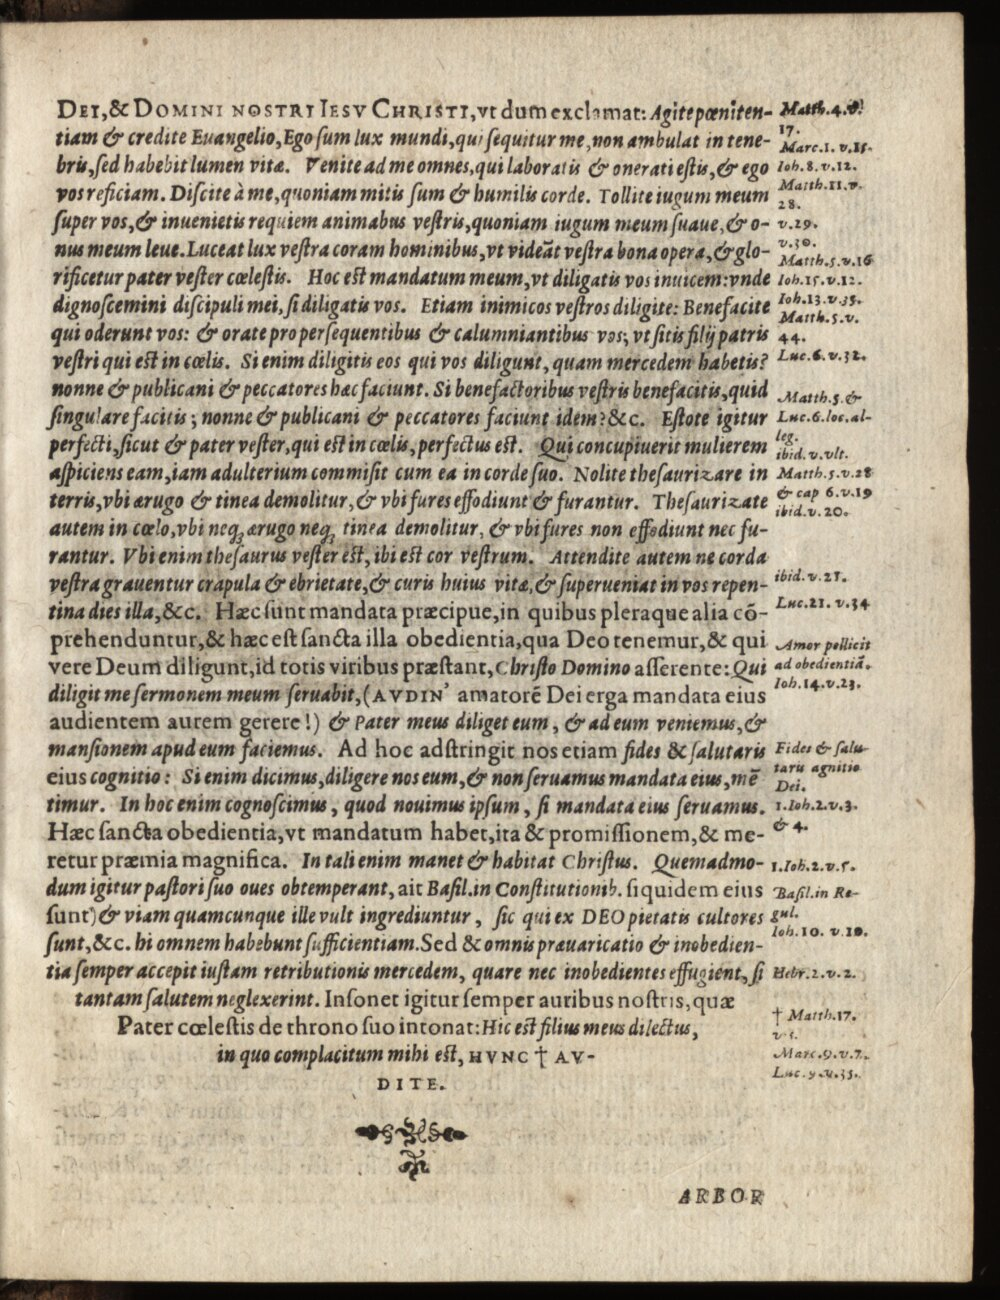 DEI, & DOMINI NOSTRI IESV CHRISTI, vt dum exclamat: Agite pœniten-
tiam & credite Euangelio, Ego sum lux mundi, qui sequitur me, non ambulat in tene-
bris, sed habebit lumen vitæ. Venite ad me omnes, qui laboratis & onerati estis, & ego
vos reficiam. Discite à me, quoniam mitis sum & humilis corde. Tollite iugum meum
super vos, & inuenietis requiem animabus vestris, quoniam iugum meum suaue, & o-
nus meum leue. Luceat lux vestra coram hominibus, vt videāt vestra bona opera, & glo-
rificetur pater vester cœlestis. Hoc est mandatum meum, vt diligatis vos inuicem: vnde
dignoscemini discipuli mei, si diligatis vos. Etiam inimicos vestros diligite: Benefacite
qui oderunt vos: & orate pro persequentibus & calumniantibus vos; vt sitis filij patris
vestri qui est in cœlis. Si enim diligitis eos qui vos diligunt, quam mercedem habetis?
nonne & publicani & peccatores hæc faciunt. Si benefactoribus vestris benefacitis, quid
singulare facitis; nonne & publicani & peccatores faciunt idem? &c. Estote igitur
perfecti, sicut & pater vester, qui est in cœlis, perfectus est. Qui concupiuerit mulierem
aspiciens eam, iam adulterium commisit cum ea in corde suo. Nolite thesaurizare in
terris, vbi ærugo & tinea demolitur, & vbi fures effodiunt & furantur. Thesaurizate
autem in cœlo, vbi neqꝫ ærugo neqꝫ tinea demolitur, & vbi fures non effodiunt nec fu-
rantur. Vbi enim thesaurus vester est, ibi est cor vestrum. Attendite autem ne corda
vestra grauentur crapula & ebrietate, & curis huius vitæ, & superueniat in vos repen-
tina dies illa, &c. Hæc sunt mandata præcipue, in quibus pleraque alia cō-
prehenduntur, & hæc est sancta illa obedientia, qua Deo tenemur, & qui
vere Deum diligunt, id totis viribus præstant, Christo Domino asserente: Qui
diligit me sermonem meum seruabit, (AVDIN' amatorē Dei erga mandata eius
audientem aurem gerere!) & Pater meus diliget eum, & ad eum veniemus, &
mansionem apud eum faciemus. Ad hoc adstringit nos etiam fides & salutaris
eius cognitio: Si enim dicimus, diligere nos eum, & non seruamus mandata eius, mē
timur. In hoc enim cognoscimus, quod nouimus ipsum, si mandata eius seruamus.
Hæc sancta obedientia, vt mandatum habet, ita & promissionem, & me-
retur præmia magnifica. In tali enim manet & habitat Christus. Quemadmo-
dum igitur pastori suo oues obtemperant, ait Basil. in Constitutionib. siquidem eius
sunt) & viam quamcunque ille vult ingrediuntur, sic qui ex DEO pietatis cultores
sunt, &c. hi omnem habebunt sufficientiam. Sed & omnis præuaricatio & inobedien-
tia semper accepit iustam retributionis mercedem, quare nec inobedientes effugient, si
tantam salutem neglexerint. Insonet igitur semper auribus nostris, quæ
Pater cœlestis de throno suo intonat: Hic est filius meus dilectus,
in quo complacitum mihi est, HVNC † AV-
DITE.
ARBOR
Matth. 4. v.
17.
Marc. 1. v. 15.
Ioh. 8. v. 12.
Matth. 11. v.
28.
v. 29.
v. 30.
Matth. 5. v. 16
Ioh. 15. v. 12.
Ioh. 13. v. 35.
Matth. 5. v.
44.
Luc. 6. v. 32.
Matth. 5. &
Luc. 6. loc. al-
leg.
ibid. v. vlt.
Matth. 5. v. 28
& cap 6. v. 19
ibid. v. 20.
ibid. v. 21.
Luc. 21. v. 34
Amor pellicit
ad obedientiā.
Ioh. 14. v. 23.
Fides & salu-
taris agnitio
Dei.
1. Ioh. 2. v. 3.
& 4.
1. Ioh. 2. v. 5.
Basil. in Re-
gul.
Ioh. 10. v. 10.
Hebr. 2. v. 2.
† Matth. 17.
v. 5.
Marc. 9. v. 7.
Luc. 9. v. 35.